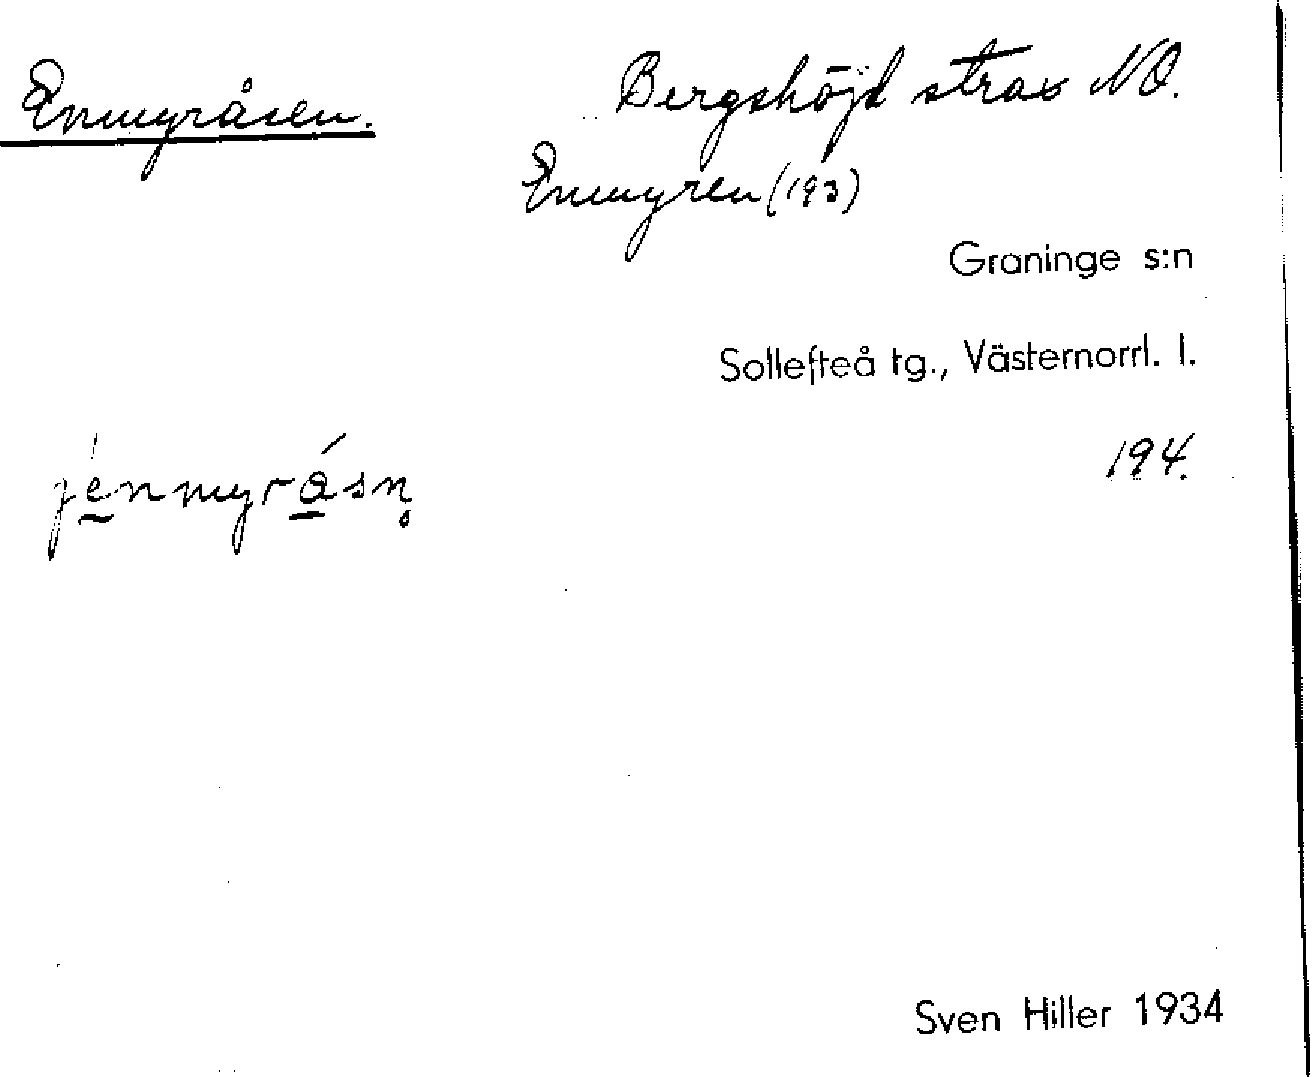 Enmyråsen.
Bergshöjd strax NO.
Enmyren (193)
Graninge s:n
Sollefteå tg., Västernorrl. l.
194.
jènmyrásn̥
Sven Hiller 1934